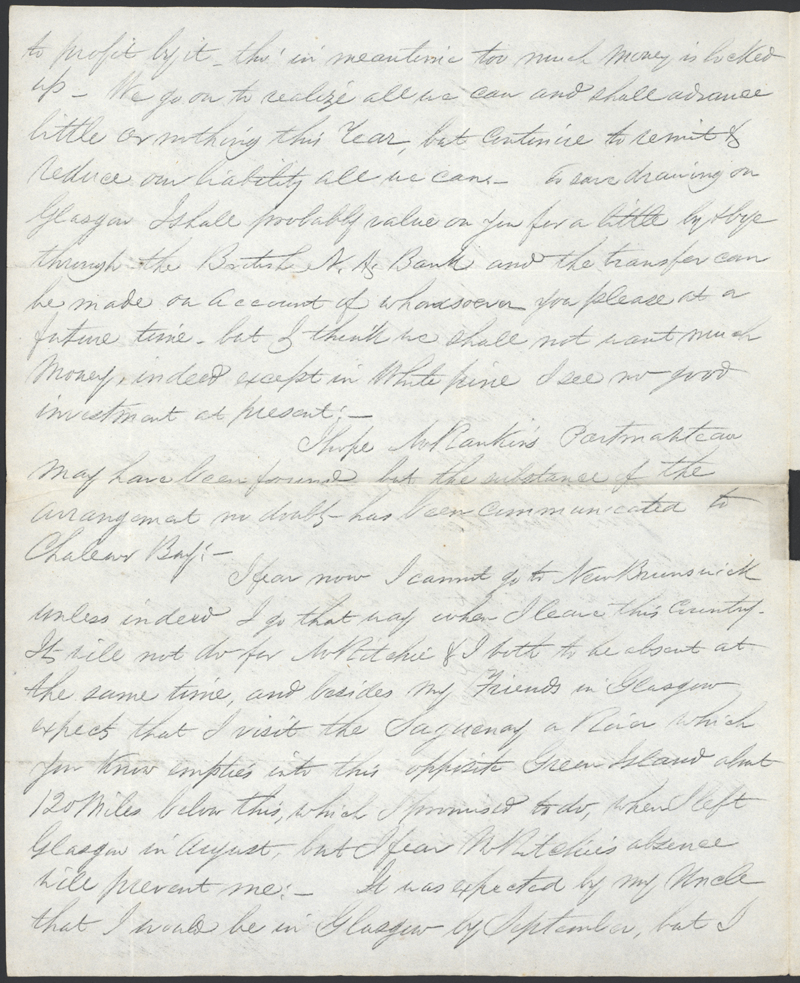 to profit by it - tho' in meantime too much money is locked
up - We go on to realize all we can and shall advance
little or nothing this Year, but continue to remit &
reduce our liability all we can. - To save drawing on
Glasgow I shall probably value on you for a little by & bye
through the British N. A. Bank and the transfer can
be made on account of whomsoever you please at a
future time - but I think we shall not want much
Money, indeed except in White pine I see no good
investment at present: -
I hope Mr Rankin's Portmanteau
may have been found but the substance of the
arrangement no doubt has been communicated to
Chaleur Bay: -
I fear now I cannot go to New Brunswick
unless indeed I go that way when I leave this Country.
It will not do for Mr Ritchie & I both to be absent at
the same time, and besides my Friends in Glasgow
expect that I visit the Saguenay a River which
you know empties into this opposite Green Island about
120 Miles below this, which I promised to do, when I left
Glasgow in August, but I fear Mr Ritchie's absence
will prevent me: - It was expected by my Uncle
that I would be in Glasgow by September, but I